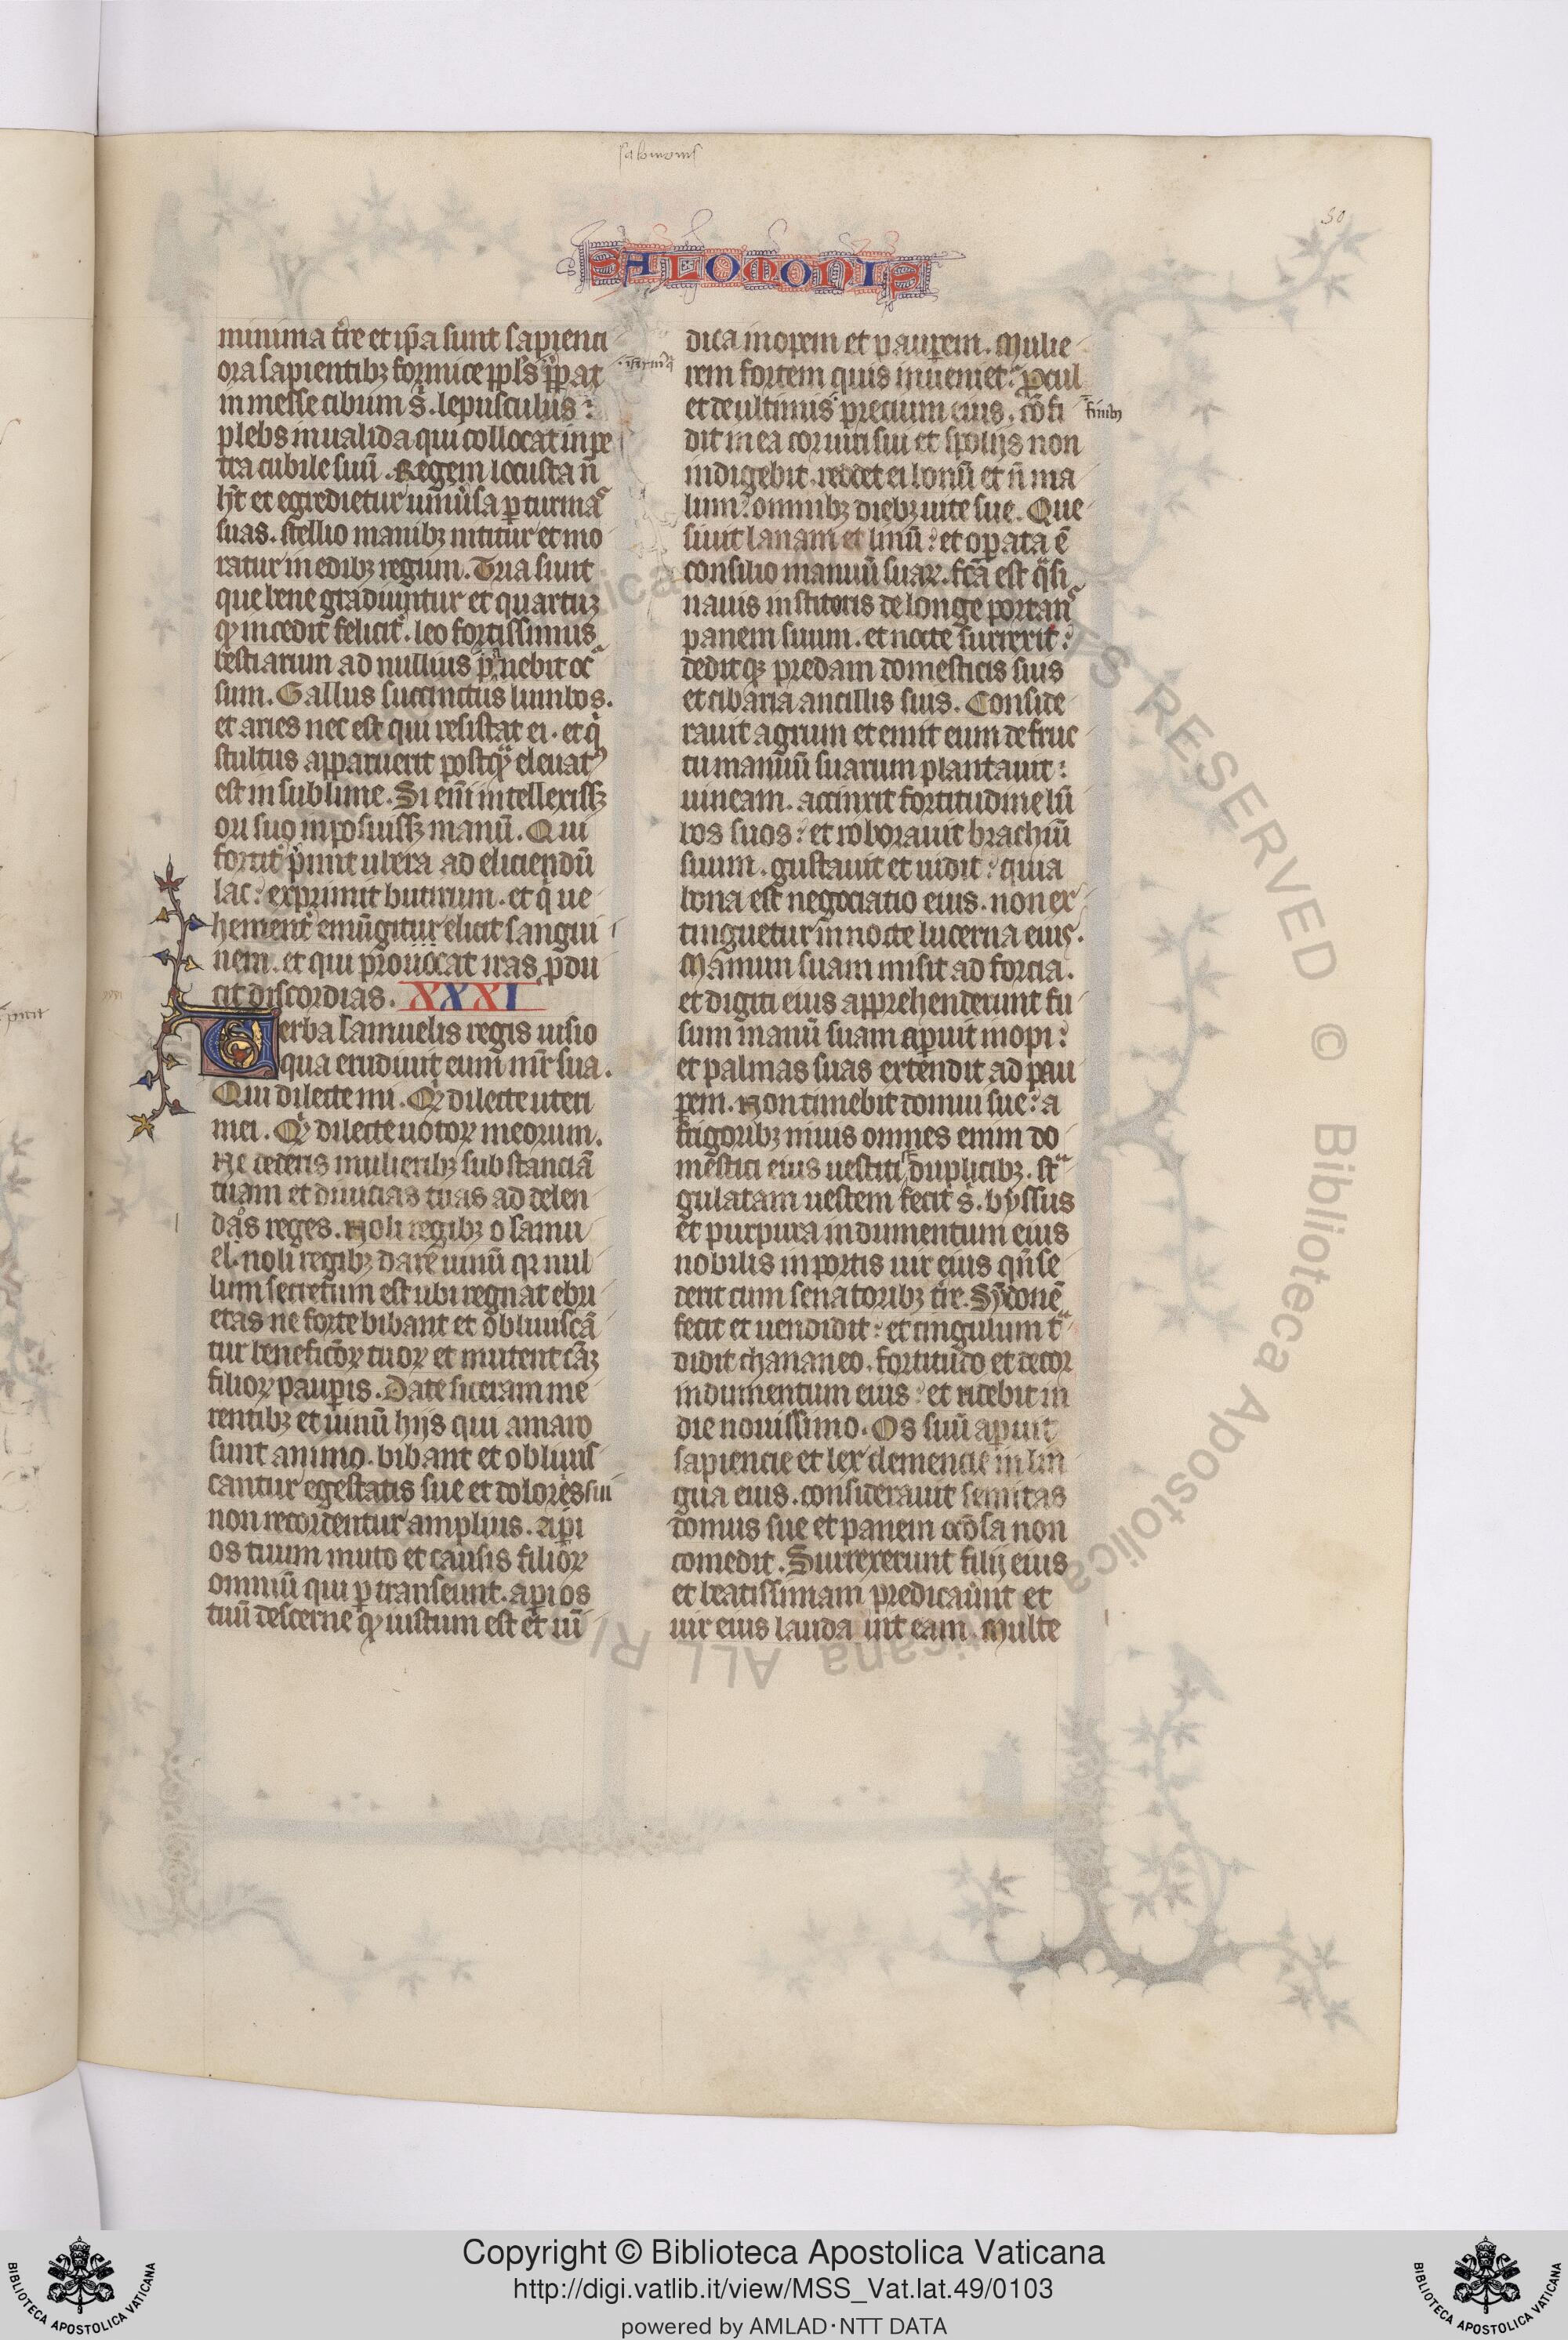 salomonis
50
SALOMONIS
minima tr̄e et ip̄a sunt sapienci
ora sapientibꝫ formice ppl̄s p̄pat
in messe cibum s. lepusculus:
plebs inualida qui collocat in pe
tra cubile suū. Regem locusta n̄
hꝫ et egredietur uniūsa ꝑ turmas
suas. stellio manibꝫ nititur et mo
ratur in edibꝫ regum. Tria sunt
que bene gradiuntur et quartuꝫ
qd̛ incedit felicit̛. leo fortissimus
bestiarum ad nullius pauebit oc
sum. Gallus succinctus lumbos.
et aries nec est qui resistat ei. et q̛
stultus apparuerit postqͣ eleuatꝰ
est in sublime. Si eni̅ intellexissꝫ
ori suo inposuissꝫ manū. Qui
fortit̛ p̛mit ubera ad eliciendū
lac: exprimit butirum. et q̛ ue
hement̛ emūgitur elicit sangui
nem. et qui prouocat iras ꝓdu
cit discordias. XXXI
Verba samuelis regis uisio
qua erudiuit eum mr̄ sua.
Qui dilecte mi. Qd̛ dilecte uteri
mei. Qd̛ dilecte uotoꝝ meorum.
Ne dederis mulieribꝫ substanciā
tuam et diuicias tuas ad delen
das reges. Noli regibꝫ o samu
el. noli regibꝫ dare uinū qꝛ nul
lum secretum est ubi regnat ebri
etas ne forte bibant et obliuiscā
tur beneficioꝝ tuoꝝ et mutent cāꝫ
filioꝝ paupis. Date siceram me
rentibꝫ et uinū hijs qui amaro
sunt animo. bibant et obliuis
cantur egestatis sue et dolores sui
non recordentur amplius. api
os tuum muto et causis filioꝝ
omniū qui ꝑtranseunt. api os
tuū descerne qd̛ iustum est et iū
dica inopem et pauꝑem. Mulie
rem fortem quis inueniet: ꝓcul
et de ultimis precium eius. cōfi
finibꝫ
dit in ea cor uiri sui et spolijs non
indigebit. reddet ei bonū et n̄ ma
lum: omnibꝫ diebꝫ uite sue. Que
siuit lanam et linū: et oꝑata ē
consilio manuū suaꝝ. fc̄a est qͣsi
nauis institoris de longe portans
panem suum. et nocte surrexit:
deditqꝫ predam domesticis suis
et cibaria ancillis suis. Conside
rauit agrum et emit eum de fruc
tu manuū suarum plantauit:
uineam. accinxit fortitudine lū
bos suos: et roborauit brachiū
suum. gustauit et uidit: quia
bona est negociatio eius. non ex
tinguetur in nocte lucerna eius.
Manum suam misit ad forcia.
et digiti eius apprehenderunt fu
sum manū suam apuit inopi:
et palmas suas extendit ad pau
ꝑem. Non timebit domui sue: a
frigoribꝫ niuis omnes enim do
mestici eius uestiti st̄ duplicibꝫ. stͣ
gulatam uestem fecit s. byssus
et purpura indumentum eius
nobilis in portis uir eius qn̄ se
derit cum senatoribꝫ tr̄e. Sydonē
fecit et uendidit: et cingulum tͣ
didit chananeo. fortitudo et decor
indumentum eius: et ridebit in
die nouissimo. Os suū apuit
sapiencie et lex clemencie in lin
gua eius. considerauit semitas
domus sue et panem ociosa non
comedit. Surrexerunt filij eius
et beatissimam predicauūnt et
uir eius lauda uit eam. Multe
ALL RIGHTS RESERVED © Biblioteca Apostolica Vaticana
Copyright © Biblioteca Apostolica Vaticana
http://digi.vatlib.it/view/MSS_Vat.lat.49/0103
powered by AMLAD·NTT DATA
BIBLIOTECA APOSTOLICA VATICANA
BIBLIOTECA APOSTOLICA VATICANA